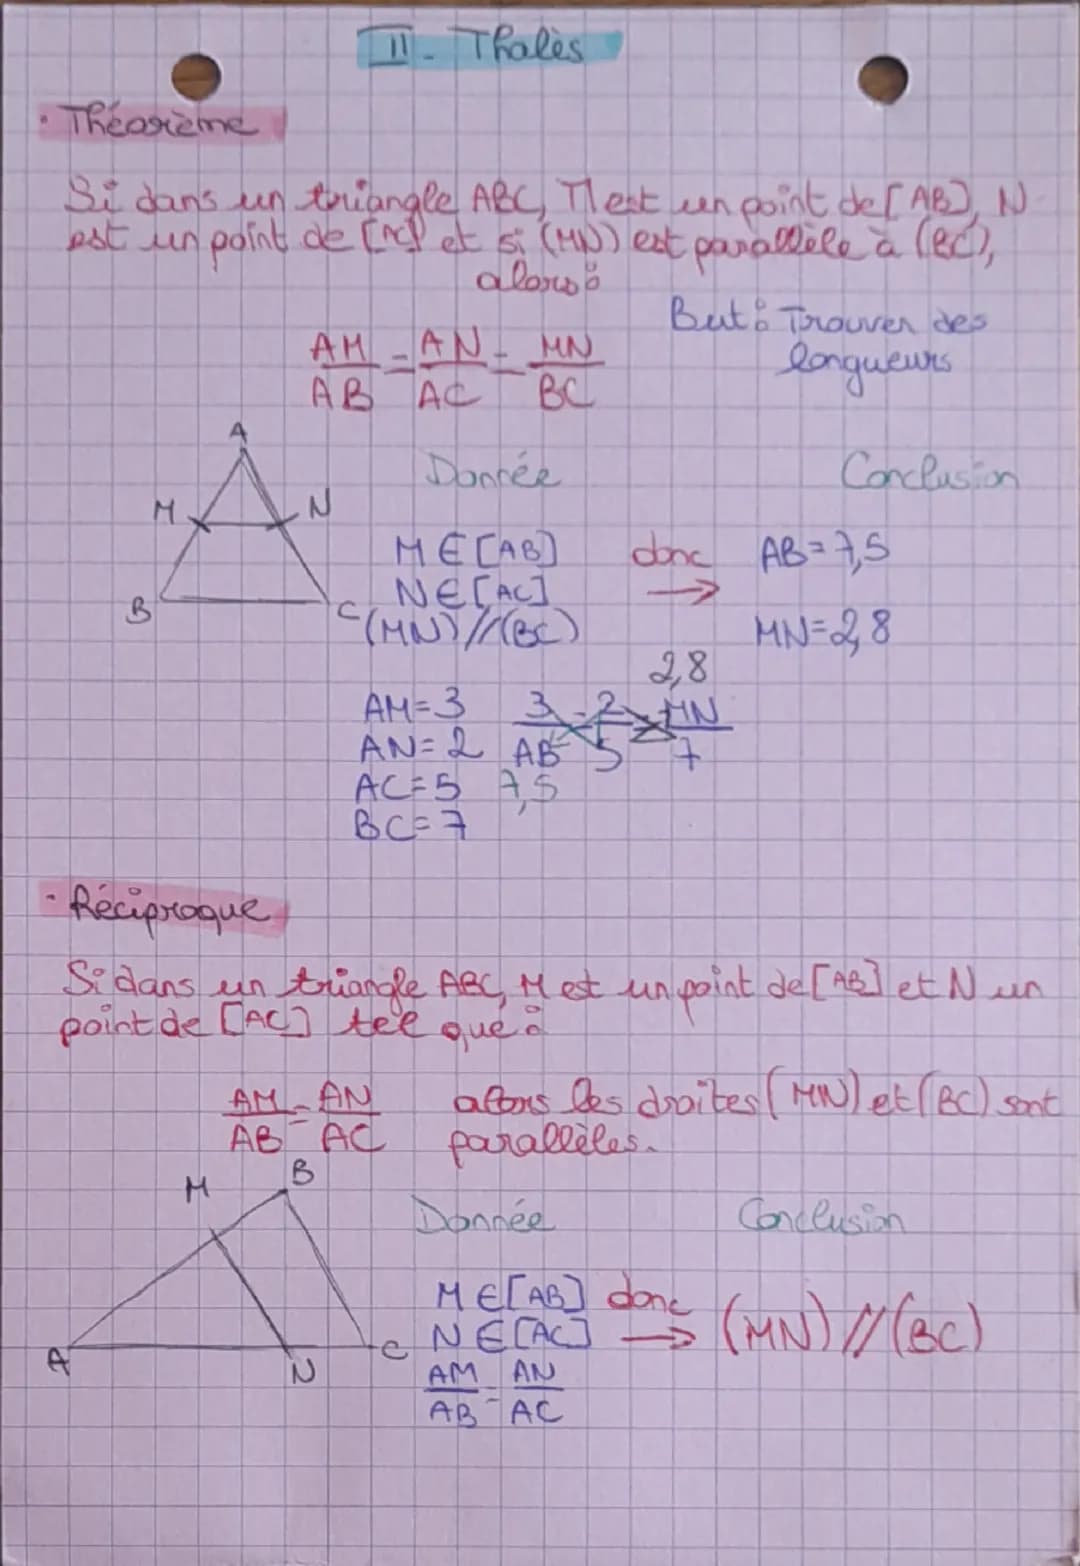 II - Thalès
• Théorème
Si dans un triangle ABC, M est un point de [AB], N
est un point de [AC] et si (MN) est parallèle à (BC),
alors :
But : Trouver des
longueurs
AM/AB = AN/AC = MN/BC
A
M N
B C
Donnée Conclusion
M ∈ [AB] donc AB = 7,5
N ∈ [AC] →
(MN) // (BC) MN = 2,8
2,8
AM = 3 3/AB = 2/5 = MN/7
AN = 2
AC = 5 7,5
BC = 7
• Réciproque
Si dans un triangle ABC, M est un point de [AB] et N un
point de [AC] tel que :
AM/AB = AN/AC alors les droites (MN) et (BC) sont
parallèles.
M B
A N C
Donnée Conclusion
M ∈ [AB] donc
N ∈ [AC] → (MN) // (BC)
AM/AB = AN/AC